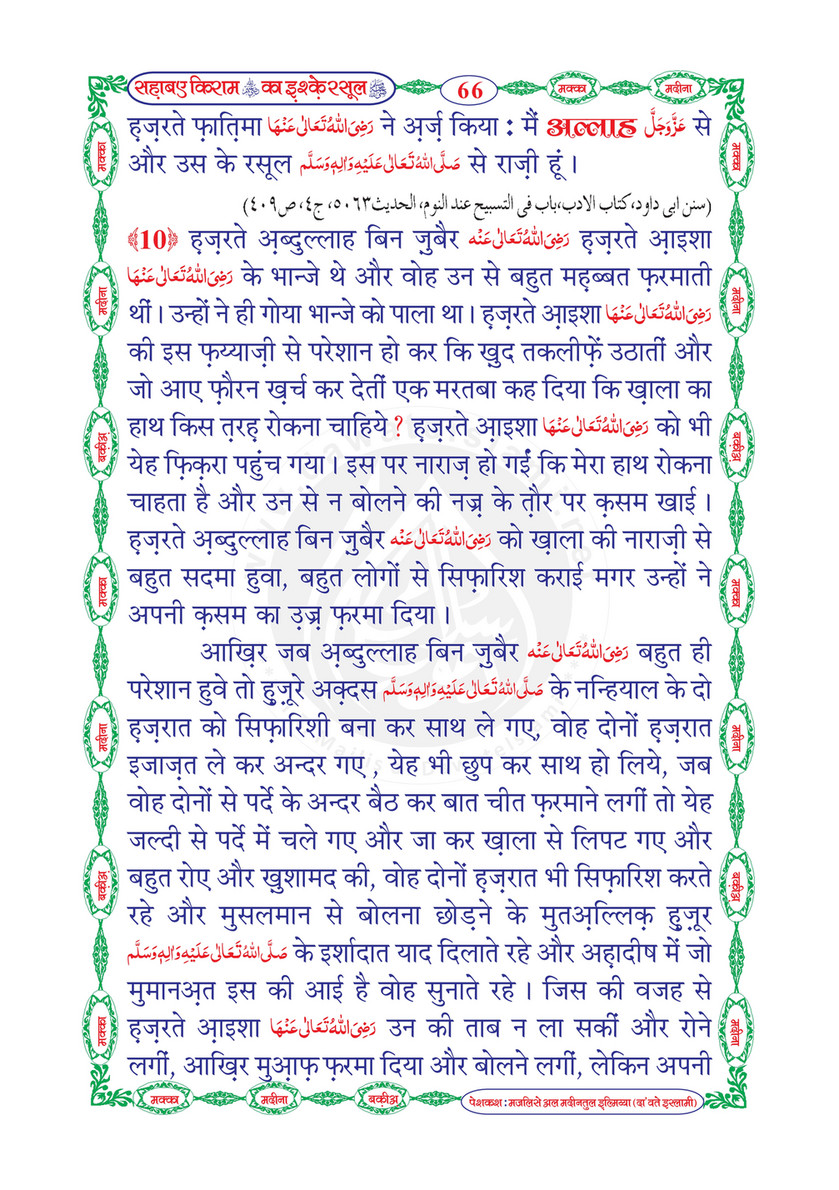 सहाबए किराम ﷺ का इश्के रसूल ﷺ
66
मक्का
मदीना
हज़रते फ़ातिमा رَضِیَ اللہُ تَعَالٰی عَنْهَا ने अ़र्ज़ किया : मैं अल्लाह عَزَّوَجَلَّ से
और उस के रसूल صَلَّی اللہُ تَعَالٰی عَلَیْهِ وَاٰلِهٖ وَسَلَّم से राज़ी हूं ।
(سنن ابی داود، کتاب الادب، باب فی التسبیح عند النوم، الحدیث ۵۰۶۳، ج۴، ص۴۰۹)
﴾10﴿ हज़रते अ़ब्दुल्लाह बिन ज़ुबैर رَضِیَ اللہُ تَعَالٰی عَنْه हज़रते आ़इशा
رَضِیَ اللہُ تَعَالٰی عَنْهَا के भान्जे थे और वोह उन से बहुत महब्बत फ़रमाती
थीं । उन्हों ने ही गोया भान्जे को पाला था । हज़रते आ़इशा رَضِیَ اللہُ تَعَالٰی عَنْهَا
की इस फ़य्याज़ी से परेशान हो कर कि ख़ुद तकलीफ़ें उठातीं और
जो आए फ़ौरन ख़र्च कर देतीं एक मरतबा कह दिया कि ख़ाला का
हाथ किस त़रह़ रोकना चाहिये ? हज़रते आ़इशा رَضِیَ اللہُ تَعَالٰی عَنْهَا को भी
येह फ़िक़रा पहुंच गया । इस पर नाराज़ हो गईं कि मेरा हाथ रोकना
चाहता है और उन से न बोलने की नज़्र के त़ौर पर क़सम खाई ।
हज़रते अ़ब्दुल्लाह बिन ज़ुबैर رَضِیَ اللہُ تَعَالٰی عَنْه को ख़ाला की नाराज़ी से
बहुत सदमा हुवा, बहुत लोगों से सिफ़ारिश कराई मगर उन्हों ने
अपनी क़सम का उ़ज़्र फ़रमा दिया ।
आख़िर जब अ़ब्दुल्लाह बिन ज़ुबैर رَضِیَ اللہُ تَعَالٰی عَنْه बहुत ही
परेशान हुवे तो हुज़ूरे अक़्दस صَلَّی اللہُ تَعَالٰی عَلَیْهِ وَاٰلِهٖ وَسَلَّم के नन्हियाल के दो
हज़रात को सिफ़ारिशी बना कर साथ ले गए, वोह दोनों हज़रात
इजाज़त ले कर अन्दर गए , येह भी छुप कर साथ हो लिये, जब
वोह दोनों से पर्दे के अन्दर बैठ कर बात चीत फ़रमाने लगीं तो येह
जल्दी से पर्दे में चले गए और जा कर ख़ाला से लिपट गए और
बहुत रोए और ख़ुशामद की, वोह दोनों हज़रात भी सिफ़ारिश करते
रहे और मुसलमान से बोलना छोड़ने के मुतअ़ल्लिक़ हुज़ूर
صَلَّی اللہُ تَعَالٰی عَلَیْهِ وَاٰلِهٖ وَسَلَّم के इर्शादात याद दिलाते रहे और अह़ादीष में जो
मुमानअ़त इस की आई है वोह सुनाते रहे । जिस की वजह से
हज़रते आ़इशा رَضِیَ اللہُ تَعَالٰی عَنْهَا उन की ताब न ला सकीं और रोने
लगीं, आख़िर मुआ़फ़ फ़रमा दिया और बोलने लगीं, लेकिन अपनी
मक्का
मदीना
बक़ीअ़
मक्का
मदीना
बक़ीअ़
मक्का
मक्का
मदीना
बक़ीअ़
मक्का
मदीना
बक़ीअ़
मदीना
मक्का
मदीना
बक़ीअ़
पेशकश : मजलिसे अल मदीनतुल इल्मिय्या (दा'वते इस्लामी)